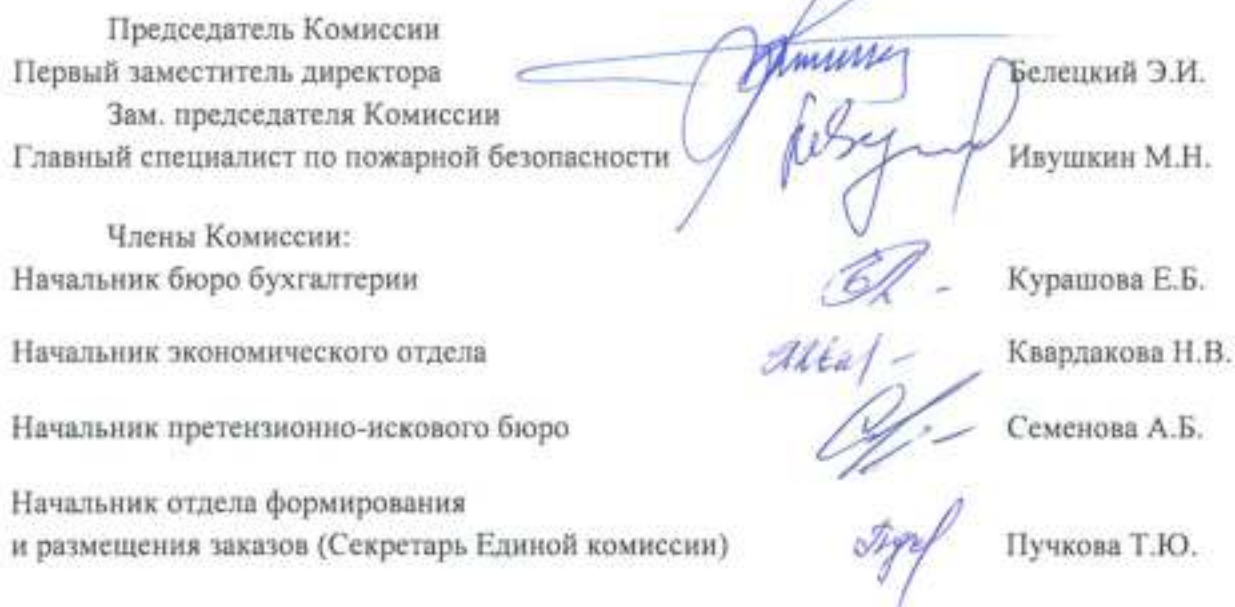 Председатель Комиссии
Первый заместитель директора Белецкий Э.И.
Зам. председателя Комиссии
Главный специалист по пожарной безопасности Ивушкин М.Н.
Члены Комиссии:
Начальник бюро бухгалтерии Курашова Е.Б.
Начальник экономического отдела Квардакова Н.В.
Начальник претензионно-искового бюро Семенова А.Б.
Начальник отдела формирования
и размещения заказов (Секретарь Единой комиссии) Пучкова Т.Ю.